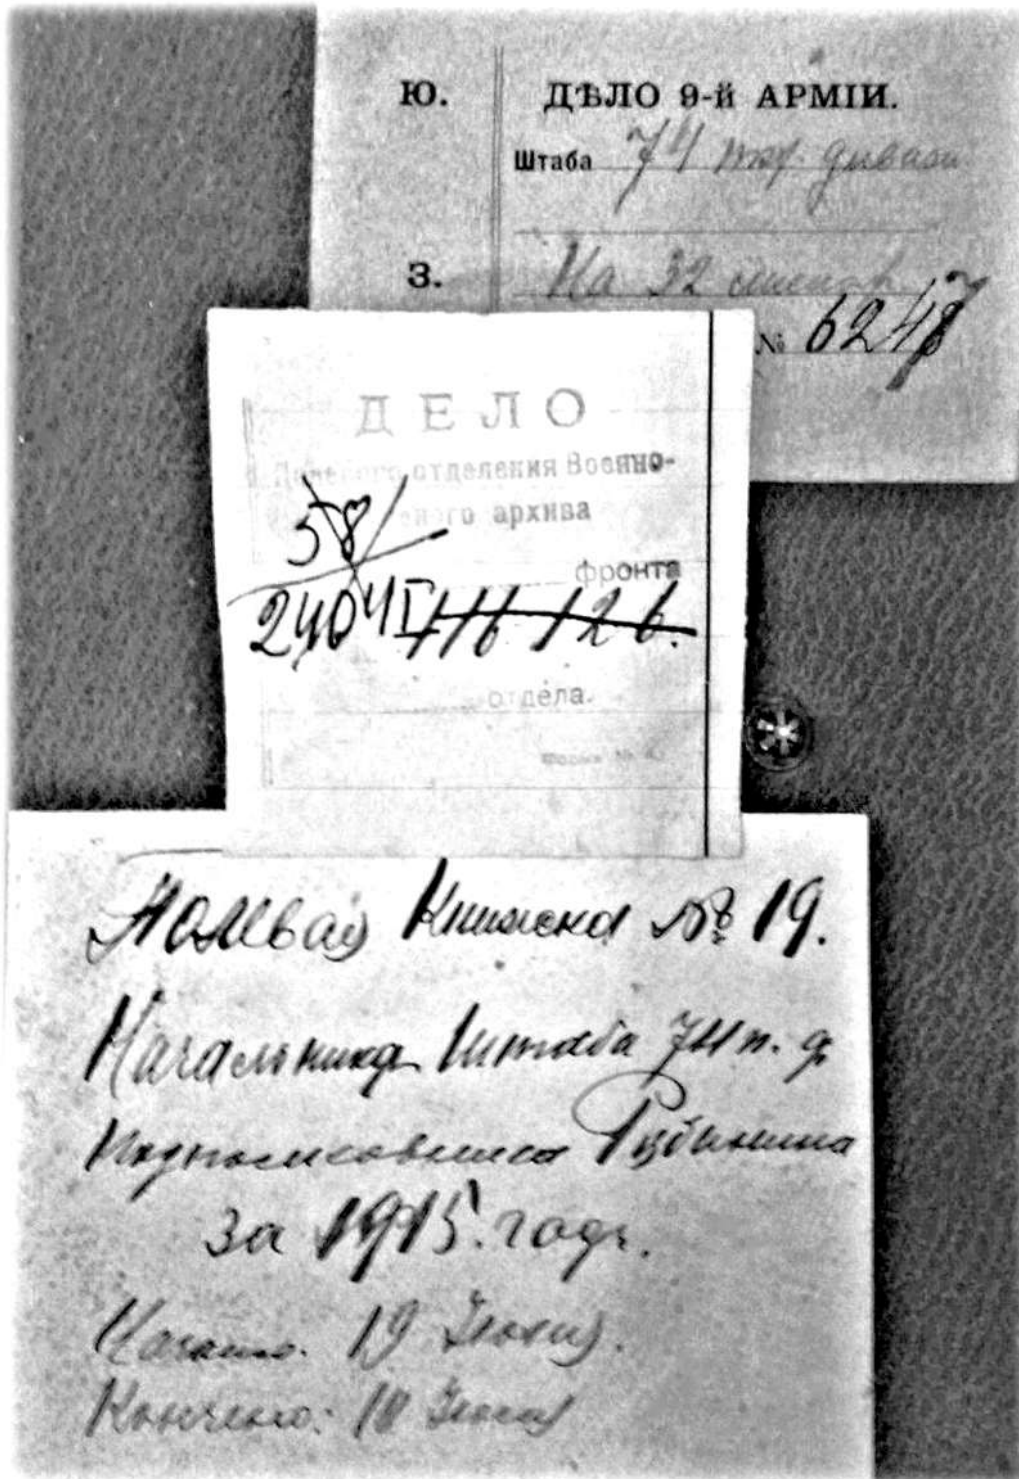 Ю.
ДѢЛО 9-й АРМІИ.
Штаба 74 пѣх. дивизіи
З.
На 32 листахъ
№ 6247
ДЕЛО
отделения Военно-
архива
58
фронта
240
116 126.
отдела.
Полевая Книжка № 19.
Начальника Штаба 74 п. д.
Подполковника
за 1915. годъ.
Начато. 19 Іюня.
Кончено: 10 Іюля